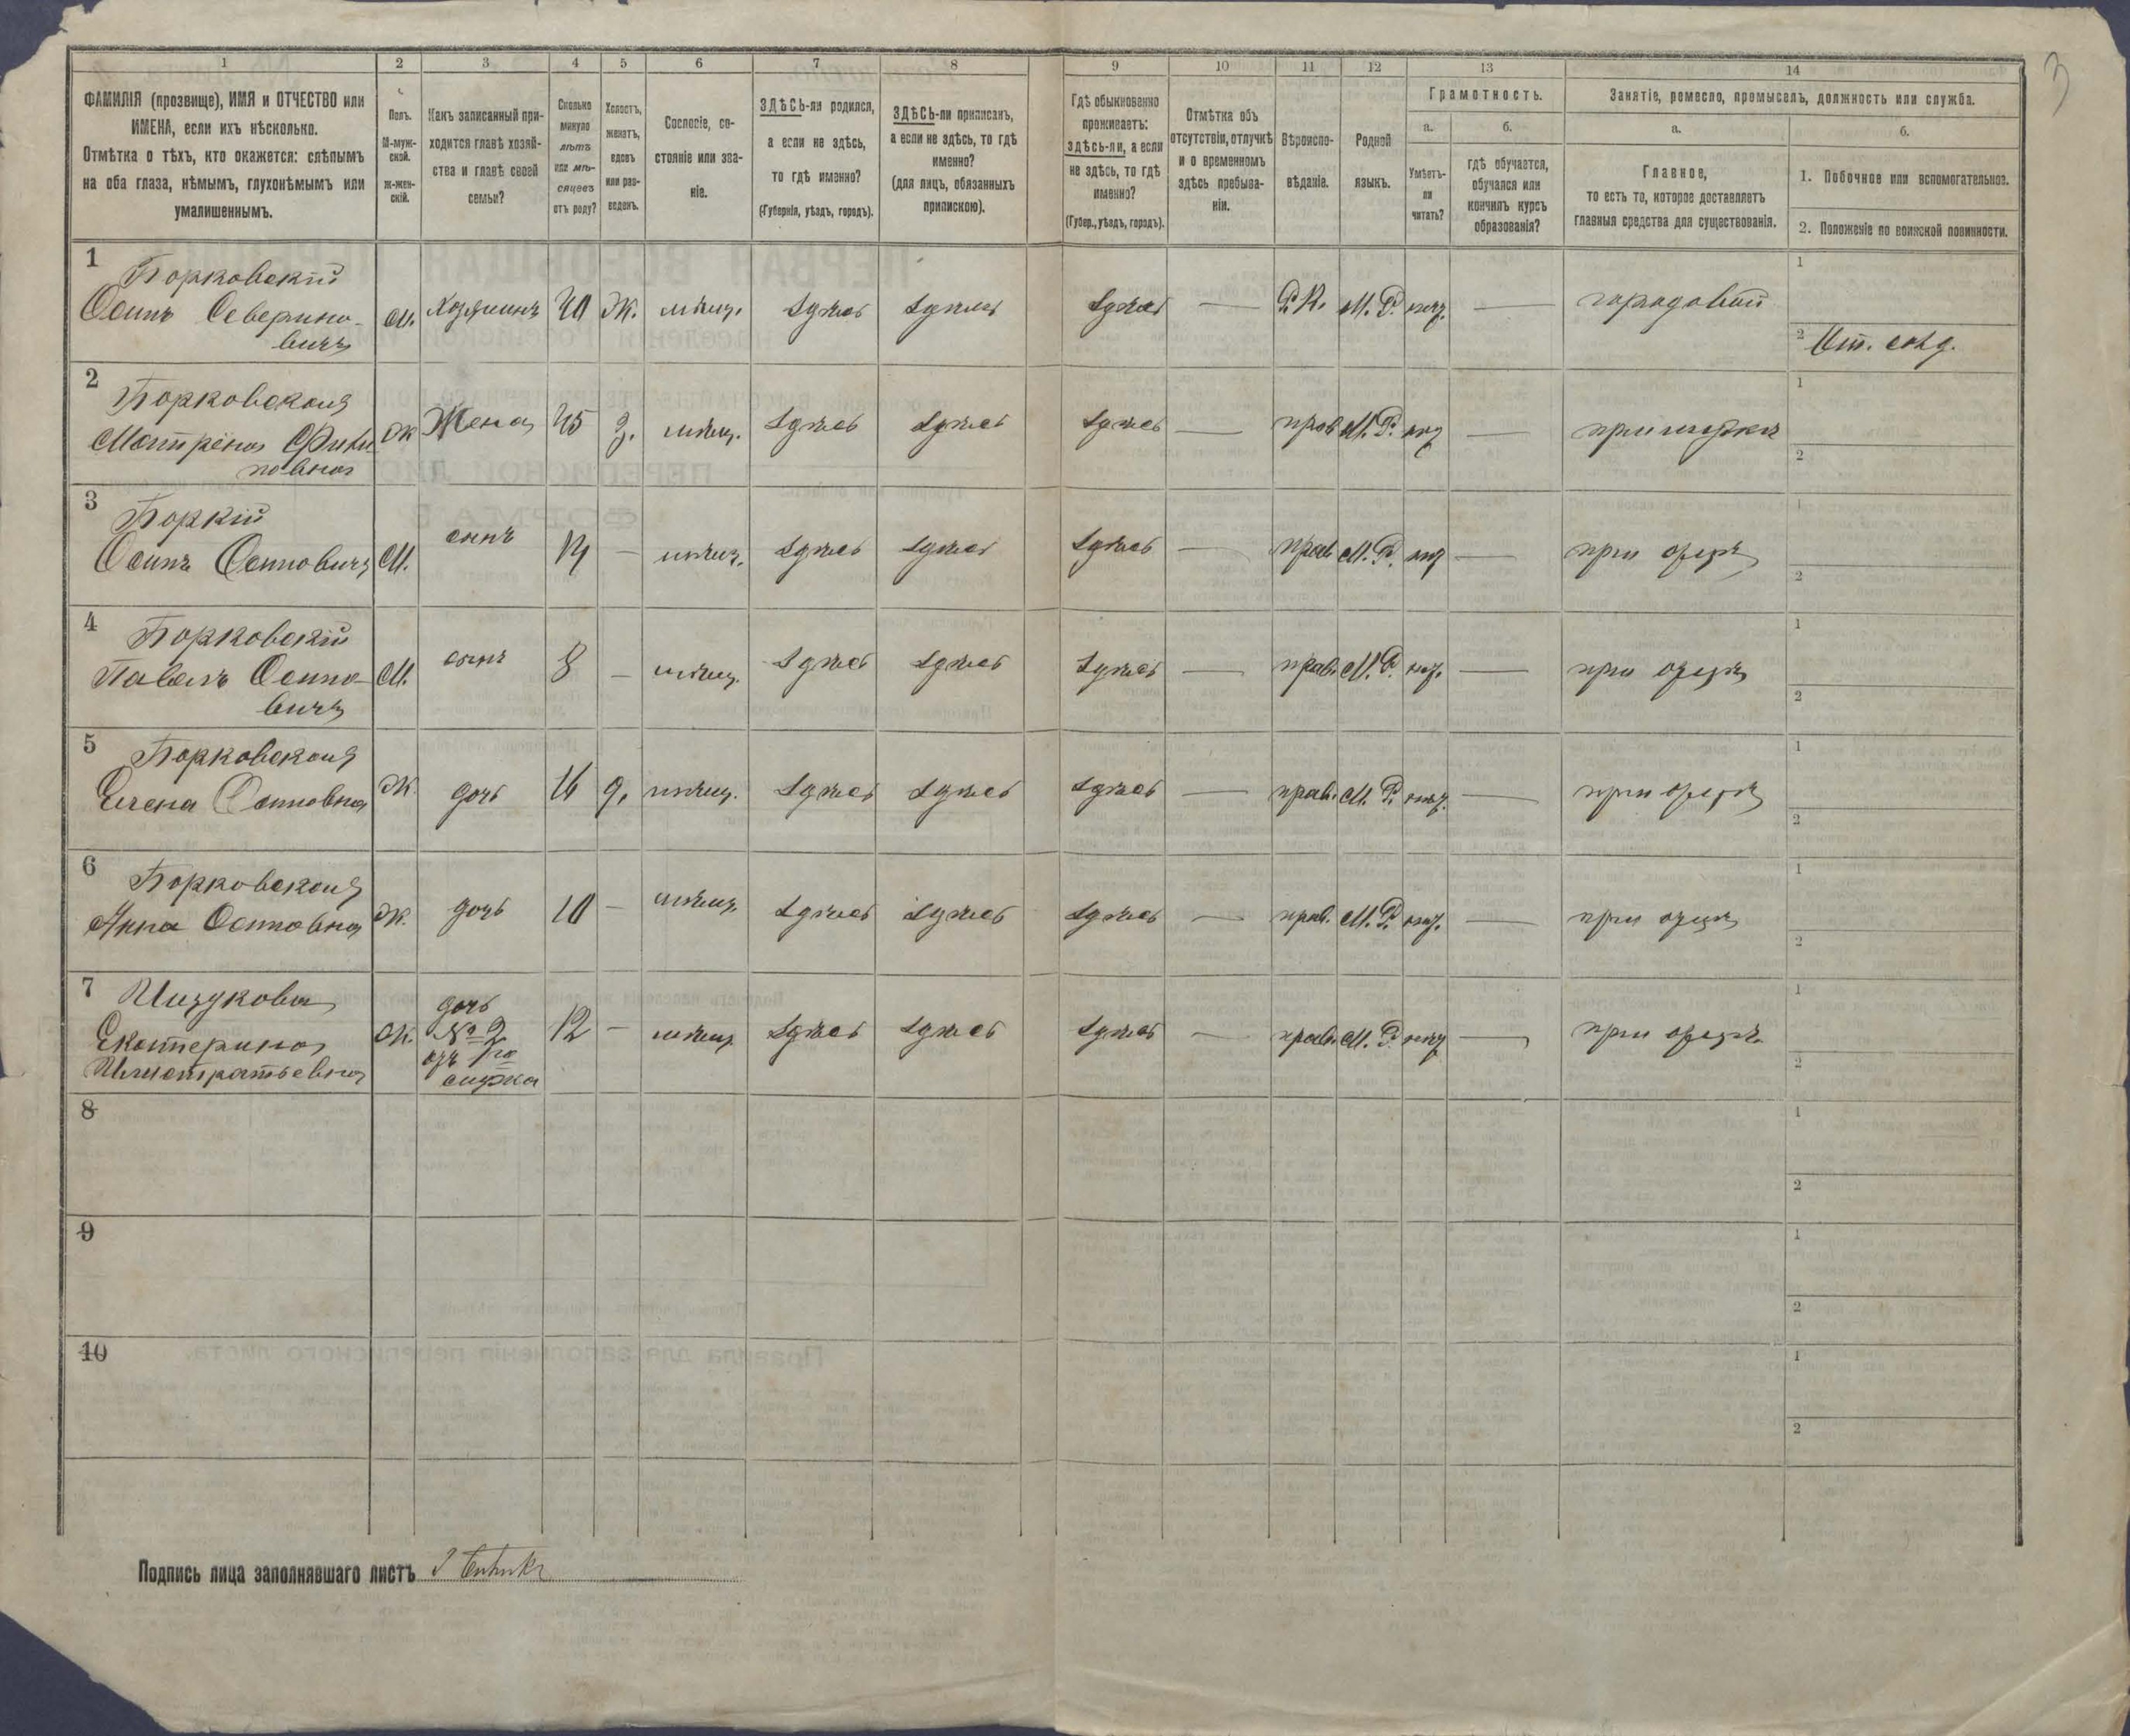 3
1 2 3 4 5 6 7 8 9 10 11 12 13 14
ФАМИЛІЯ (прозвище), ИМЯ и ОТЧЕСТВО или
ИМЕНА, если ихъ нѣсколько.
Отмѣтка о тѣхъ, кто окажется: слѣпымъ
на оба глаза, нѣмымъ, глухонѣмымъ или
умалишеннымъ.
Полъ.
М-муж-
ской.
ж-жен-
скій.
Какъ записанный при-
ходится главѣ хозяй-
ства и главѣ своей
семьи?
Сколько
минуло
лѣтъ
или мѣ-
сяцевъ
отъ роду?
Холостъ,
женатъ,
вдовъ
или раз-
веденъ.
Сословіе, со-
стояніе или зва-
ніе.
ЗДѢСЬ-ли родился,
а если не здѣсь,
то гдѣ именно?
(Губернія, уѣздъ, городъ).
ЗДѢСЬ-ли приписанъ,
а если не здѣсь, то гдѣ
именно?
(для лицъ, обязанныхъ
припискою).
Гдѣ обыкновенно
проживаетъ:
здѣсь-ли, а если
не здѣсь, то гдѣ
именно?
(Губер., уѣздъ, городъ).
Отмѣтка объ
отсутствіи, отлучкѣ
и о временномъ
здѣсь пребыва-
ніи.
Вѣроиспо-
вѣданіе.
Родной
языкъ.
Грамотность.
а.
Умѣетъ-
ли
читать?
б.
гдѣ обучается,
обучался или
кончилъ курсъ
образованія?
Занятіе, ремесло, промыселъ, должность или служба.
а.
Главное,
то есть то, которое доставляетъ
главныя средства для существованія.
б.
1. Побочное или вспомогательное.
2. Положеніе по воинской повинности.
1 Борковскій
Осипъ Северино-
вичъ
м. Хозяинъ 40 ж. мѣщ. Здѣсь Здѣсь Здѣсь — Р.К. М.Р. — городовой
1
2
2 Борковская
Матрёна Фили
повна
ж Жена 45 З. мѣщ. Здѣсь Здѣсь Здѣсь — прав М.Р. — при мужѣ
1
2
3 Боркій
Осипъ Осиповичъ
М. сынъ 14 — мѣщ. Здѣсь Здѣсь Здѣсь — прав М.Р. — при отцѣ
1
2
4 Борковскій
Павелъ Осипо-
вичъ
М. сынъ 8 — мѣщ. Здѣсь Здѣсь Здѣсь — прав. М.Р. — при отцѣ
1
2
5 Борковская
Елена Осиповна
Ж. дочь 16 д. мѣщ. Здѣсь Здѣсь Здѣсь — прав. М.Р. — при отцѣ
1
2
6 Борковская
Анна Осиповна
Ж. дочь 10 — мѣщ. Здѣсь Здѣсь Здѣсь — прав. М.Р. — при отцѣ
1
2
7
Екатерина
ж. дочь
№ 2
12 — мѣщ. Здѣсь Здѣсь Здѣсь — прав. М.Р. — при отцѣ
1
2
8
1
2
9
1
2
10
1
2
Подпись лица заполнявшаго листъ